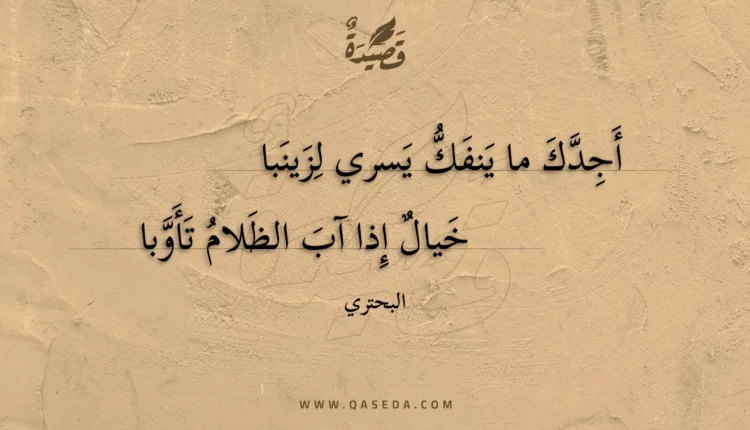 قَصِيدَةٌ
أَجِدَّكَ ما يَنفَكُّ يَسري لِزَينَبا
خَيالٌ إِذا آبَ الظَلامُ تَأَوَّبا
البحتري
WWW.QASEDA.COM